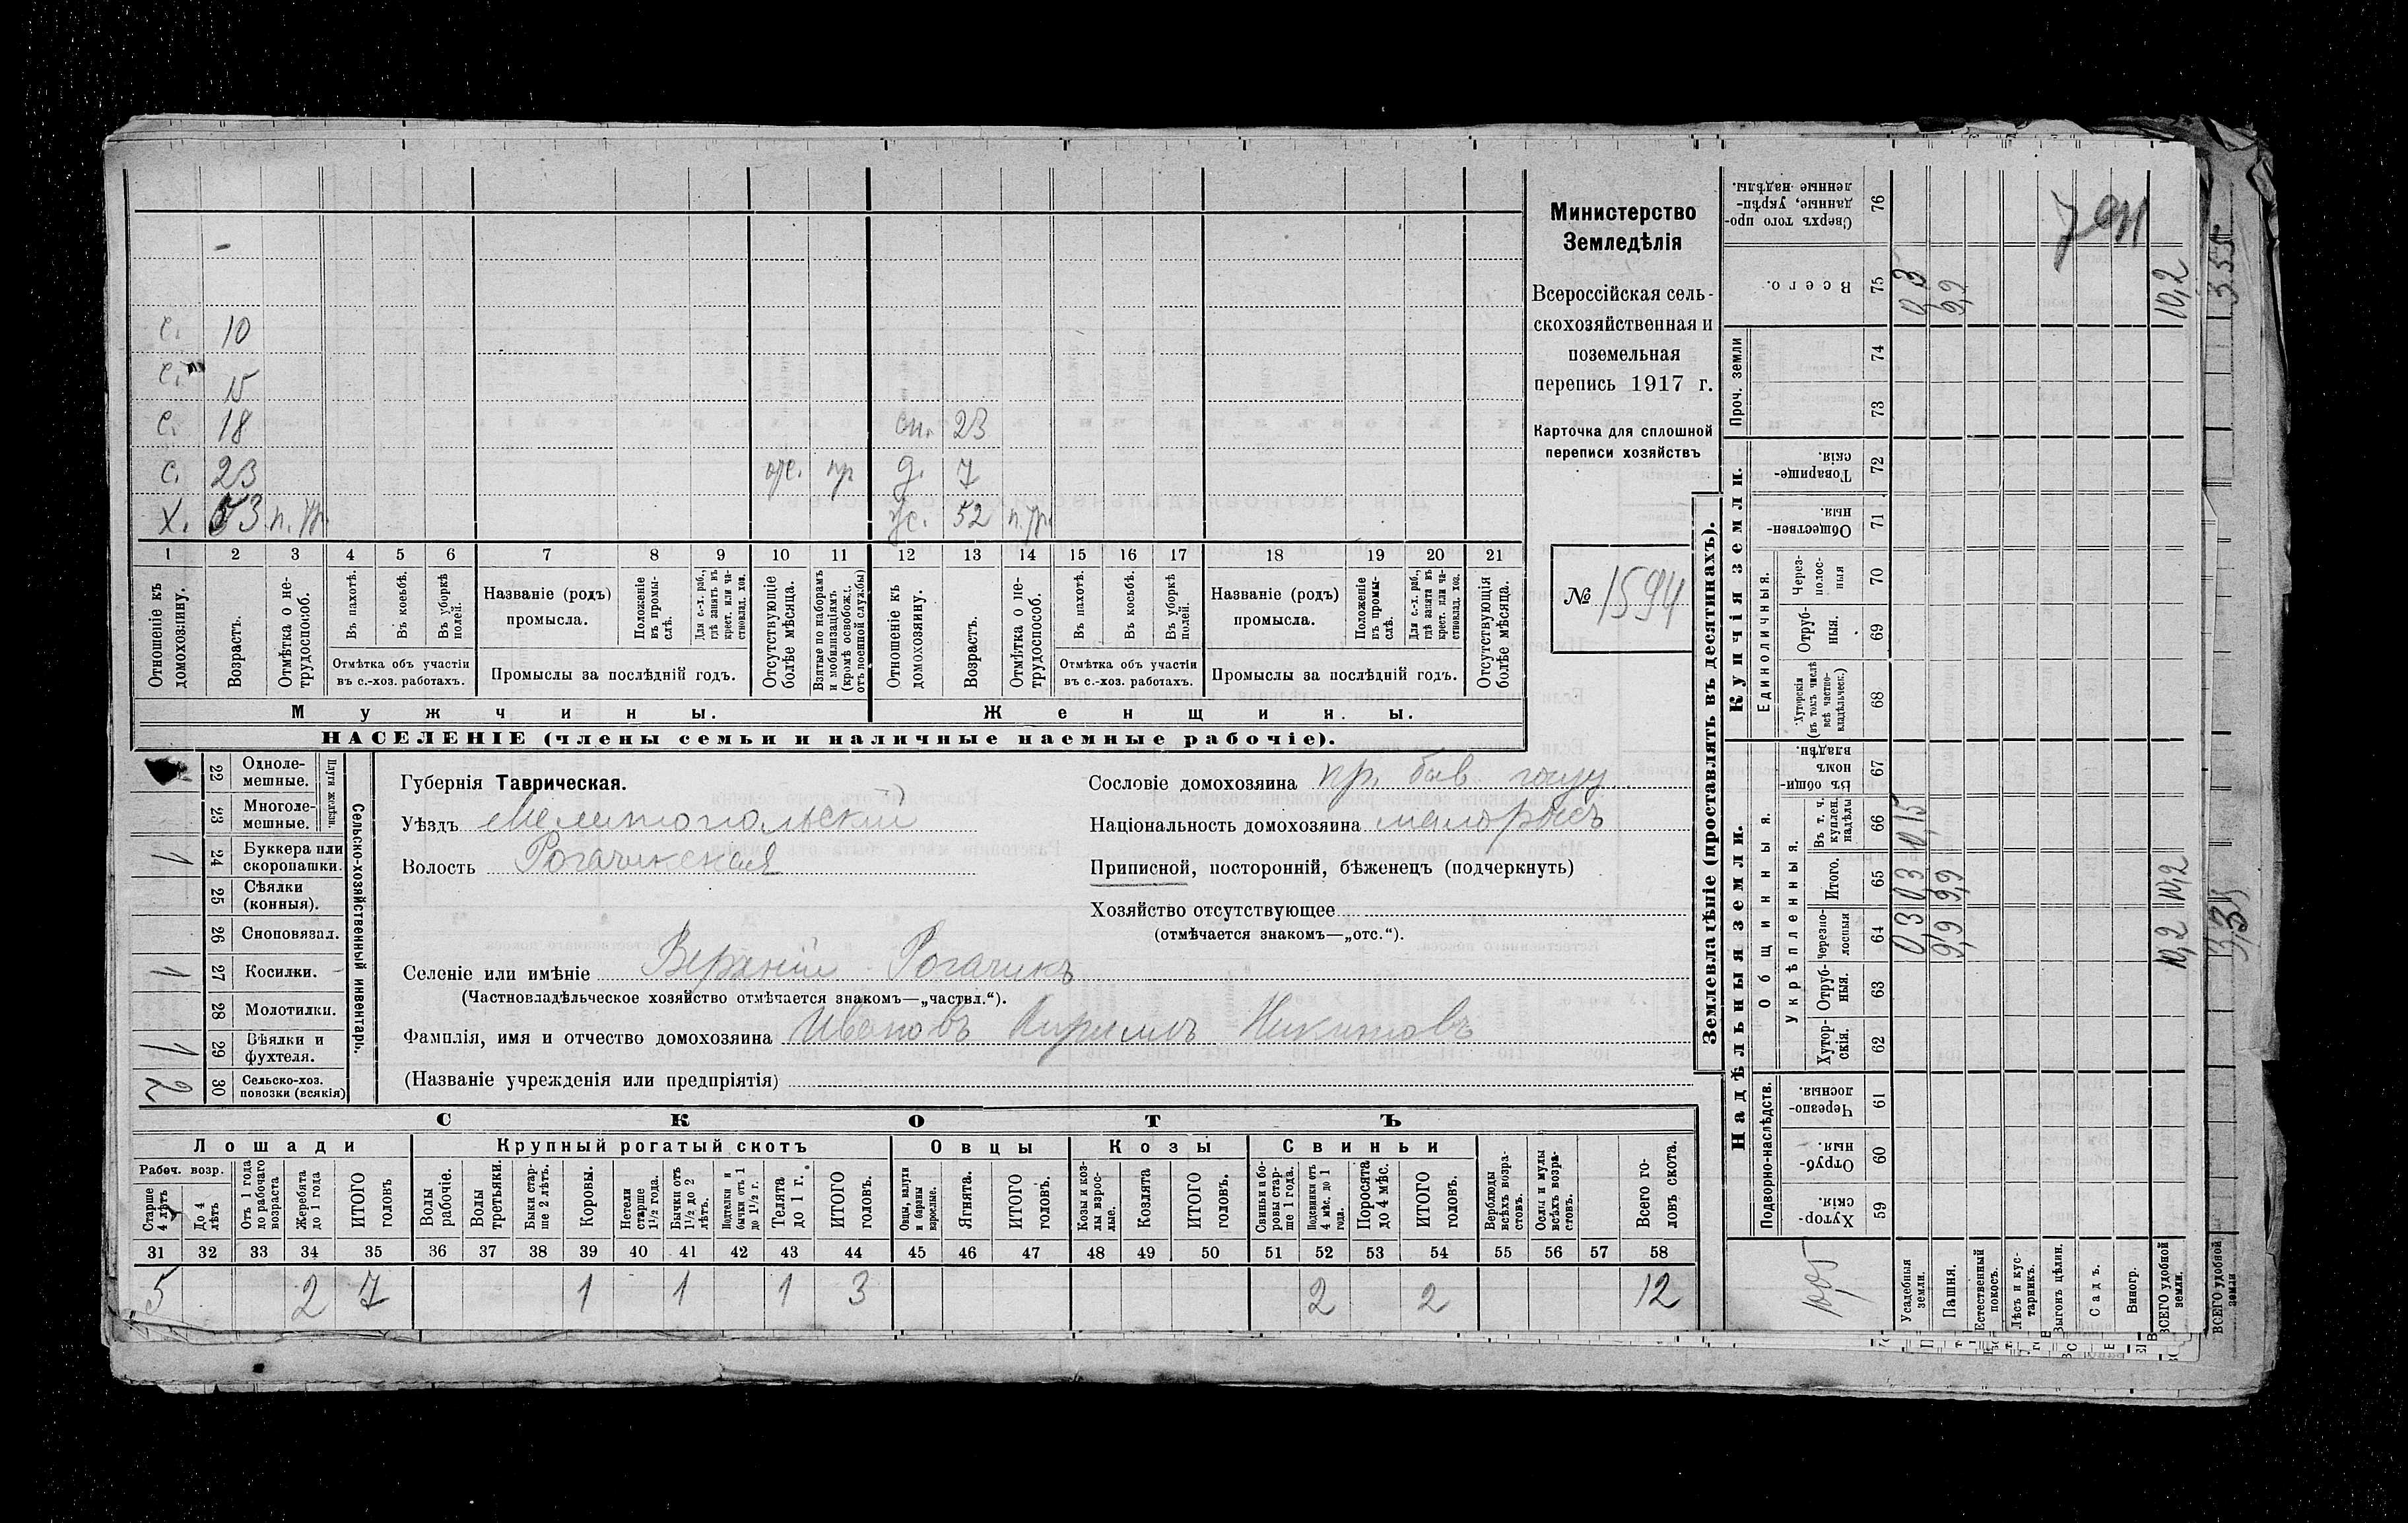 с. 10
с. 15
с. 18 сн. 23
с. 23 пр д. 7
х. 53 п. тр. ж. 52 п. тр.
1 2 3 4 5 6 7 8 9 10 11 12 13 14 15 16 17 18 19 20 21
Отношеніе къ домохозяину.
Возрастъ.
Отмѣтка о нетрудоспособ.
Въ пахотѣ.
Въ косьбѣ.
Въ уборкѣ полей.
Отмѣтка объ участіи
въ с.-хоз. работахъ.
Названіе (родъ)
промысла.
Положеніе въ промыслѣ.
Для с.-х. раб., гдѣ занятъ въ крест. или частновлад. хоз.
Промыслы за послѣдній годъ.
Отсутствующіе болѣе мѣсяца.
Взятые по наборамъ и мобилизаціямъ (кромѣ освобожд. отъ военной службы)
Отношеніе къ домохозяину.
Возрастъ.
Отмѣтка о нетрудоспособ.
Въ пахотѣ.
Въ косьбѣ.
Въ уборкѣ полей.
Отмѣтка объ участіи
въ с.-хоз. работахъ.
Названіе (родъ)
промысла.
Положеніе въ промыслѣ.
Для с.-х. раб., гдѣ занята въ крест. или частновлад. хоз.
Промыслы за послѣдній годъ.
Отсутствующія болѣе мѣсяца.
Мужчины. Женщины.
НАСЕЛЕНІЕ (члены семьи и наличные наемные рабочіе).
Министерство
Земледѣлія
Всероссійская сель-
скохозяйственная и
поземельная
перепись 1917 г.
Карточка для сплошной
переписи хозяйствъ
№ 1594
Сельско-хозяйственный инвентарь.
Плуги желѣзн.
22 Одноле-
мешные.
23 Многоле-
мешные.
1 24 Буккера или
скоропашки.
25 Сѣялки
(конныя).
26 Сноповязал.
1 27 Косилки.
28 Молотилки.
1 29 Вѣялки и
фухтеля.
2 30 Сельско-хоз.
повозки (всякія)
Губернія Таврическая.
Уѣздъ Мелитопольскій
Волость Рогачикская
Селеніе или имѣніе Верхній Рогачикъ
(Частновладѣльческое хозяйство отмѣчается знакомъ—„частвл.“).
Фамилія, имя и отчество домохозяина Ивановъ Кириллъ Никитовъ
(Названіе учрежденія или предпріятія)
Сословіе домохозяина кр. быв. госуд.
Національность домохозяина малороссъ
Приписной, посторонній, бѣженецъ (подчеркнуть)
Хозяйство отсутствующее
(отмѣчается знакомъ—„отс.“).
СКОТЪ
Лошади Крупный рогатый скотъ Овцы Козы Свиньи
Рабоч. возр.
Старше 4 лѣтъ
До 4 лѣтъ
Отъ 1 года до рабочаго возраста
Жеребята до 1 года
ИТОГО головъ
Волы рабочіе.
Волы третьяки.
Быки старше 2 лѣтъ.
Коровы.
Нетели старше 1½ года.
Бычки отъ 1½ до 2 лѣтъ.
Подтелки и бычки отъ 1 до 1½ г.
Телята до 1 г.
ИТОГО головъ.
Овцы, валухи и бараны взрослые.
Ягнята.
ИТОГО головъ.
Козы и козлы взрослые.
Козлята
ИТОГО головъ.
Свиньи и боровы старше 1 года.
Подсвинки отъ 4 мѣс. до 1 года.
Поросята до 4 мѣс.
ИТОГО головъ.
Верблюды всѣхъ возрастовъ.
Ослы и мулы всѣхъ возрастовъ.
Всего головъ скота.
31 32 33 34 35 36 37 38 39 40 41 42 43 44 45 46 47 48 49 50 51 52 53 54 55 56 57 58
5 2 7 1 1 1 3 2 2 12
Землевладѣніе (проставлять въ десятинахъ).
Надѣльныя земли. Купчія земли.
Подворно-наслѣдств.
Общинныя.
Укрѣпленныя.
Единоличныя.
Проч. земли
Хуторскія. 59
Отрубныя. 60
Черезполосныя. 61
Хуторскія. 62
Отрубныя. 63
Черезполосныя 64
Итого. 65
Въ т. ч. куплен. надѣлы 66
Въ общинномъ владѣн. 67
Хуторскія (въ томъ числѣ всѣ частновладѣльческ.) 68
Отрубныя. 69
Черезполосныя 70
Общественныя. 71
Товарищескія. 72
73
74
Всего. 75
Сверхъ того проданные, укрѣпленные надѣлы. 76
Усадебныя земли. 0,3 0,3 0,15 0,3
Пашня. 9,9 9,9 9,9
Естественный покосъ.
Лѣсъ и кустарникъ.
Выгонъ цѣлин.
Садъ.
Виногр.
ВСЕГО удобной земли. 10,2 10,2 10,2
ВСЕГО удобной земли